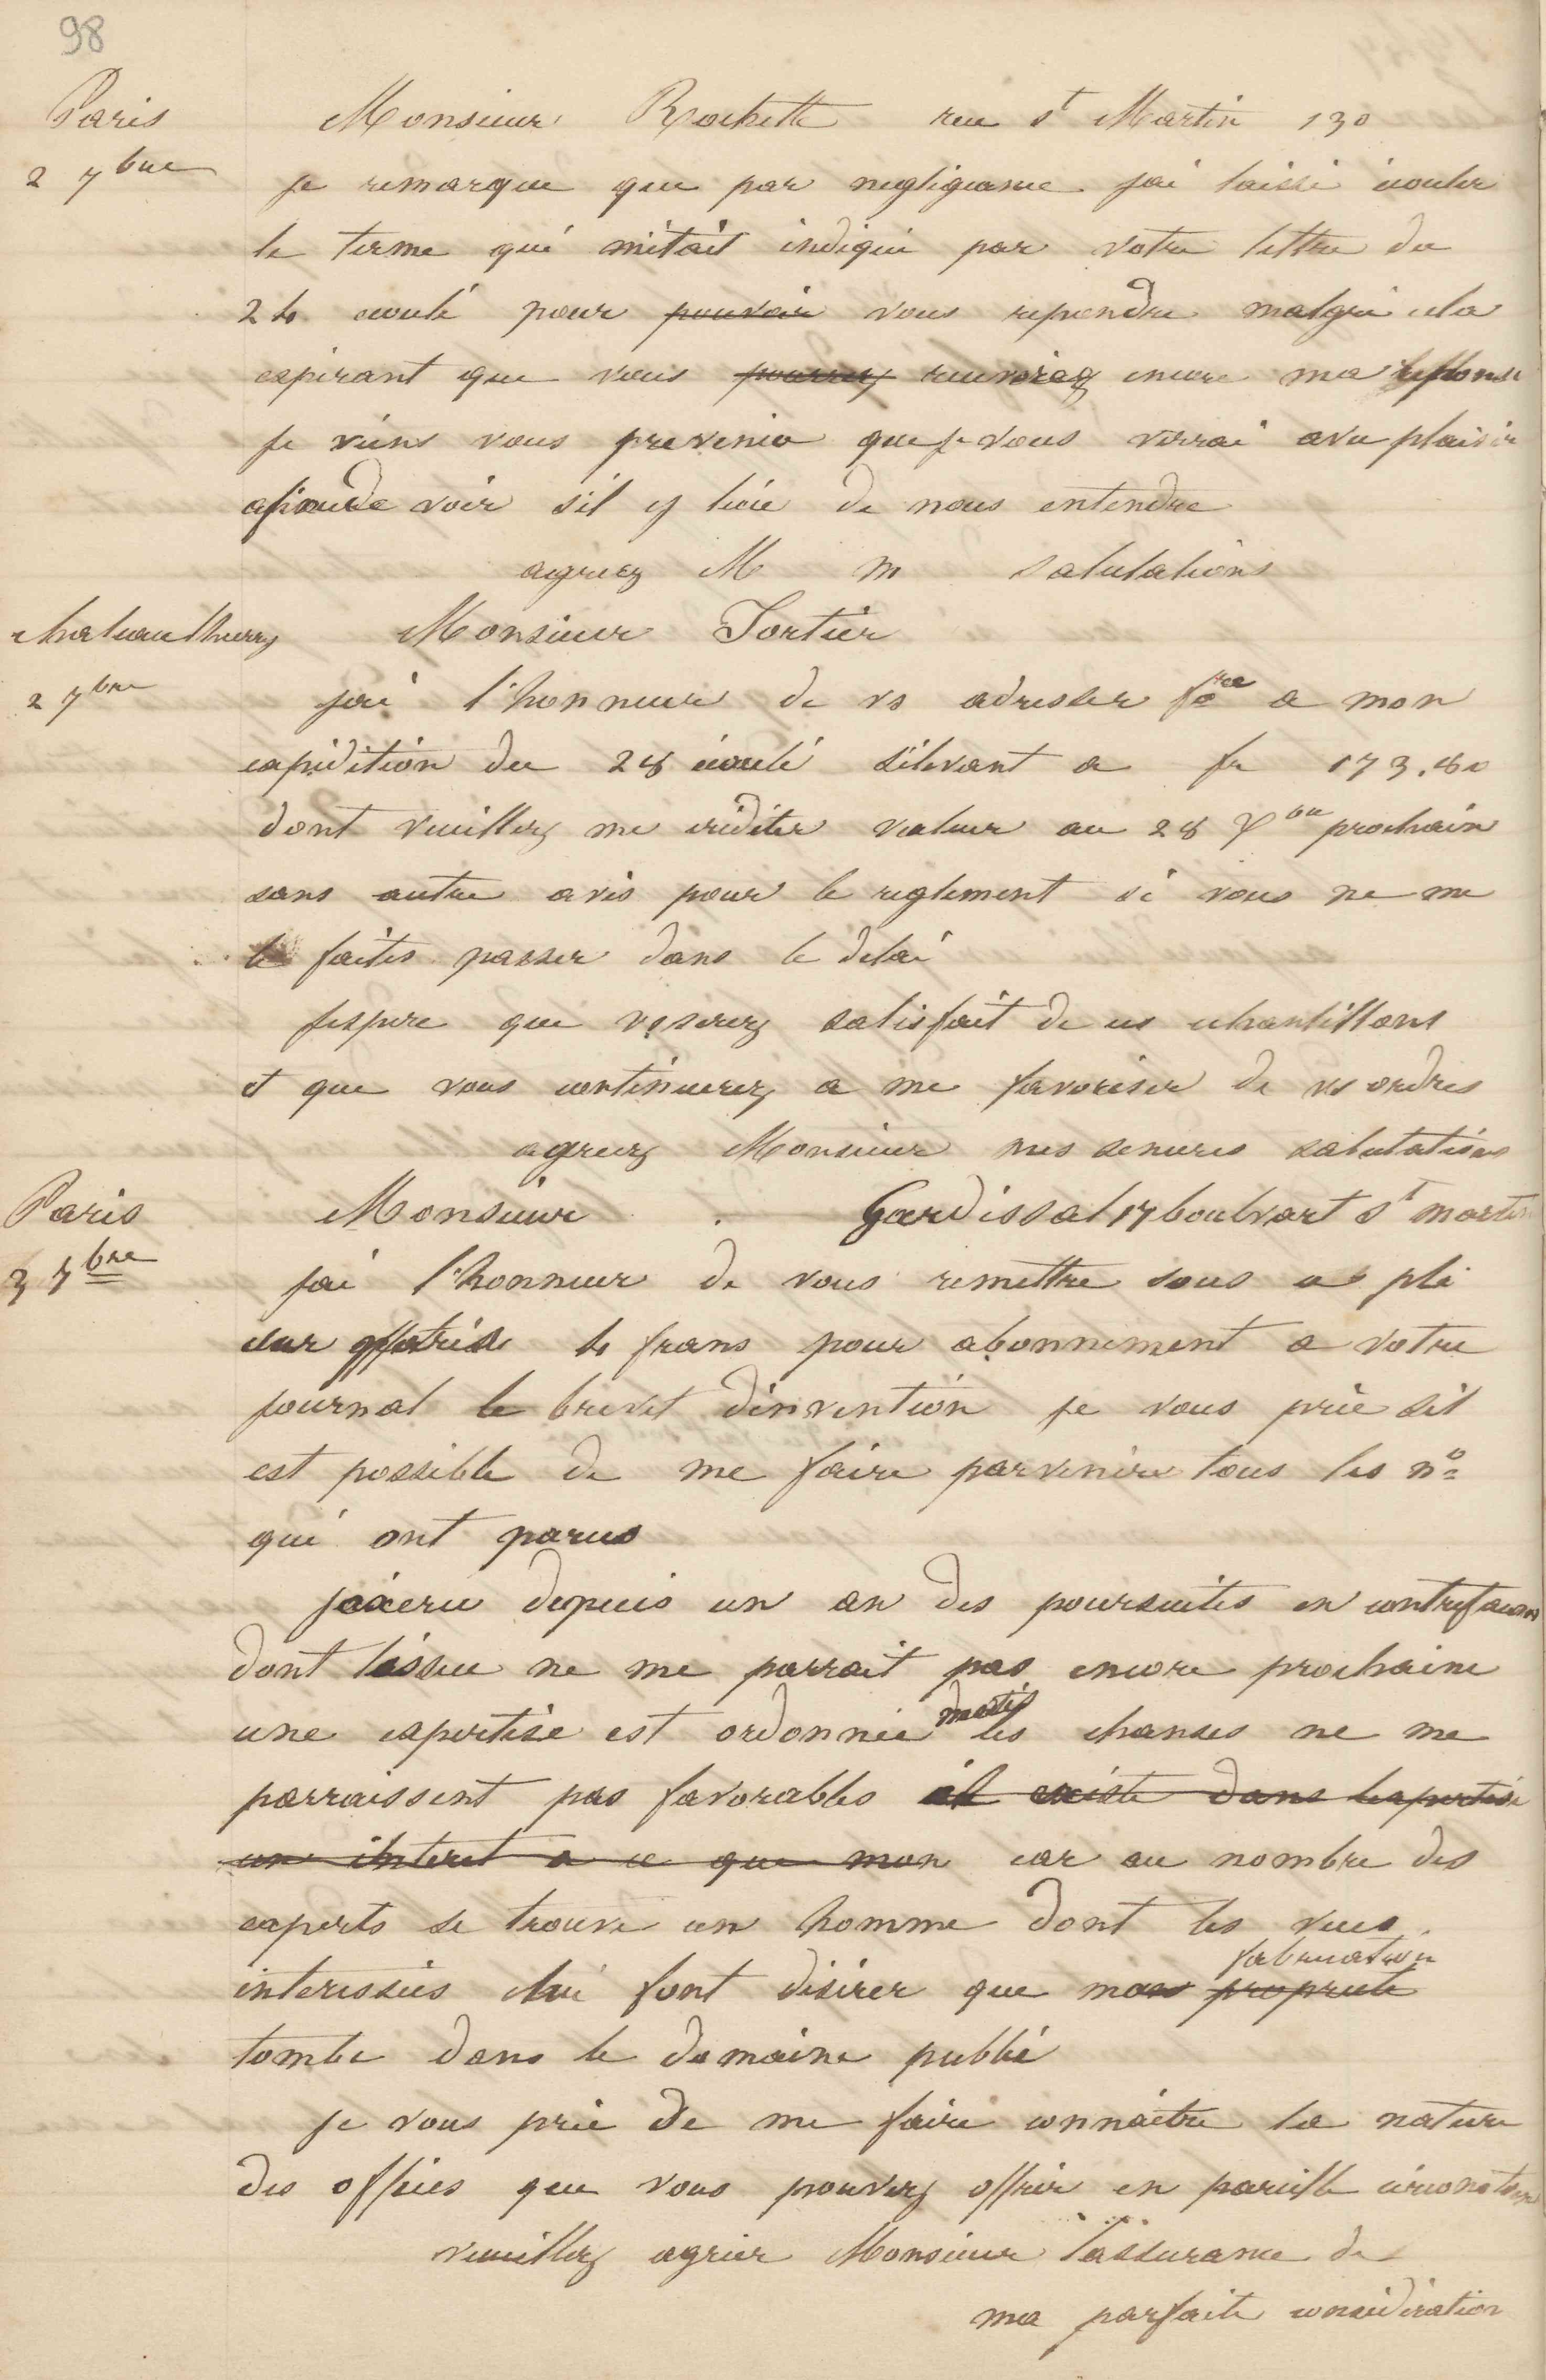 98
Paris
2 7bre
Monsieur Rochette rue St Martin 130
je remarque que par negligeance jai laissé écouler
le terme qui m'etait indiqué par votre lettre du
24 ecoulé pour pouvoir vous repondre malgré cela
esperant que vous pourrez recevriez encore ma reponse
je viens vous prevenir que je vous verrai avec plaisir
afin de voir s'il y lieu de nous entendre
agreez M m salutations
chateauthierry
2 7bre
Monsieur Tortier
jai l'honneur de vs adresser fre a mon
expédition du 28 écoulé s'élevant a fr 173.80
dont veuillez me créditer valeur au 28 Xbre prochain
sans autre avis pour le reglement si vous ne me
le faites passer dans le délai
jespere que vs serez satisfait de ces echantillons
et que vous continuerez a me favoriser de vs ordres
agreez Monsieur mes sinceres salutations
Paris
3 7bre
Monsieur Gardissal 17 boulvart St martin
jai l'honneur de vous remettre sous ce pli
4 frans pour abonnement a votre
journal le brevet d'invention je vous prie sil
est possible de me faire parvenir tous les no
qui ont parus
jexerce depuis un an des poursuites en contrefacon
dont lissue ne me parrait pas encore prochaine
une expertise est ordonnée les chanses ne me
parraissent pas favorables il existe dans lexpertise
un interet a ce que mon car au nombre des
experts se trouve un homme dont les vues
interessées lui font désirer que ma propriete fabrication
tombe dans le domaine publié
je vous prie de me faire connaitre la nature
des offices que vous pouvez offrir en pareille circonstance
veuillez agréer Monsieur lassurance de
ma parfaite considération